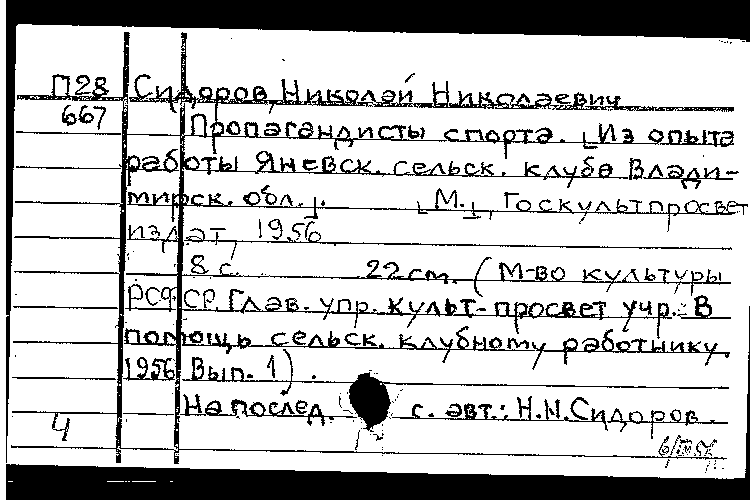 П28 Сидоров, Николай Николаевич
667 Пропагандисты спорта. [Из опыта
работы Яневск. сельск. клуба Влади-
мирск. обл.]. [М.], Госкультпросвет
издат, 1956
8 с. 22 см. (М-во культуры
РСФСР. Глав. упр. культ-просвет учр. В
помощь сельск. клубному работнику.
1956 Вып. 1).
На послед. с. авт.: Н.Н.Сидоров.
Ч